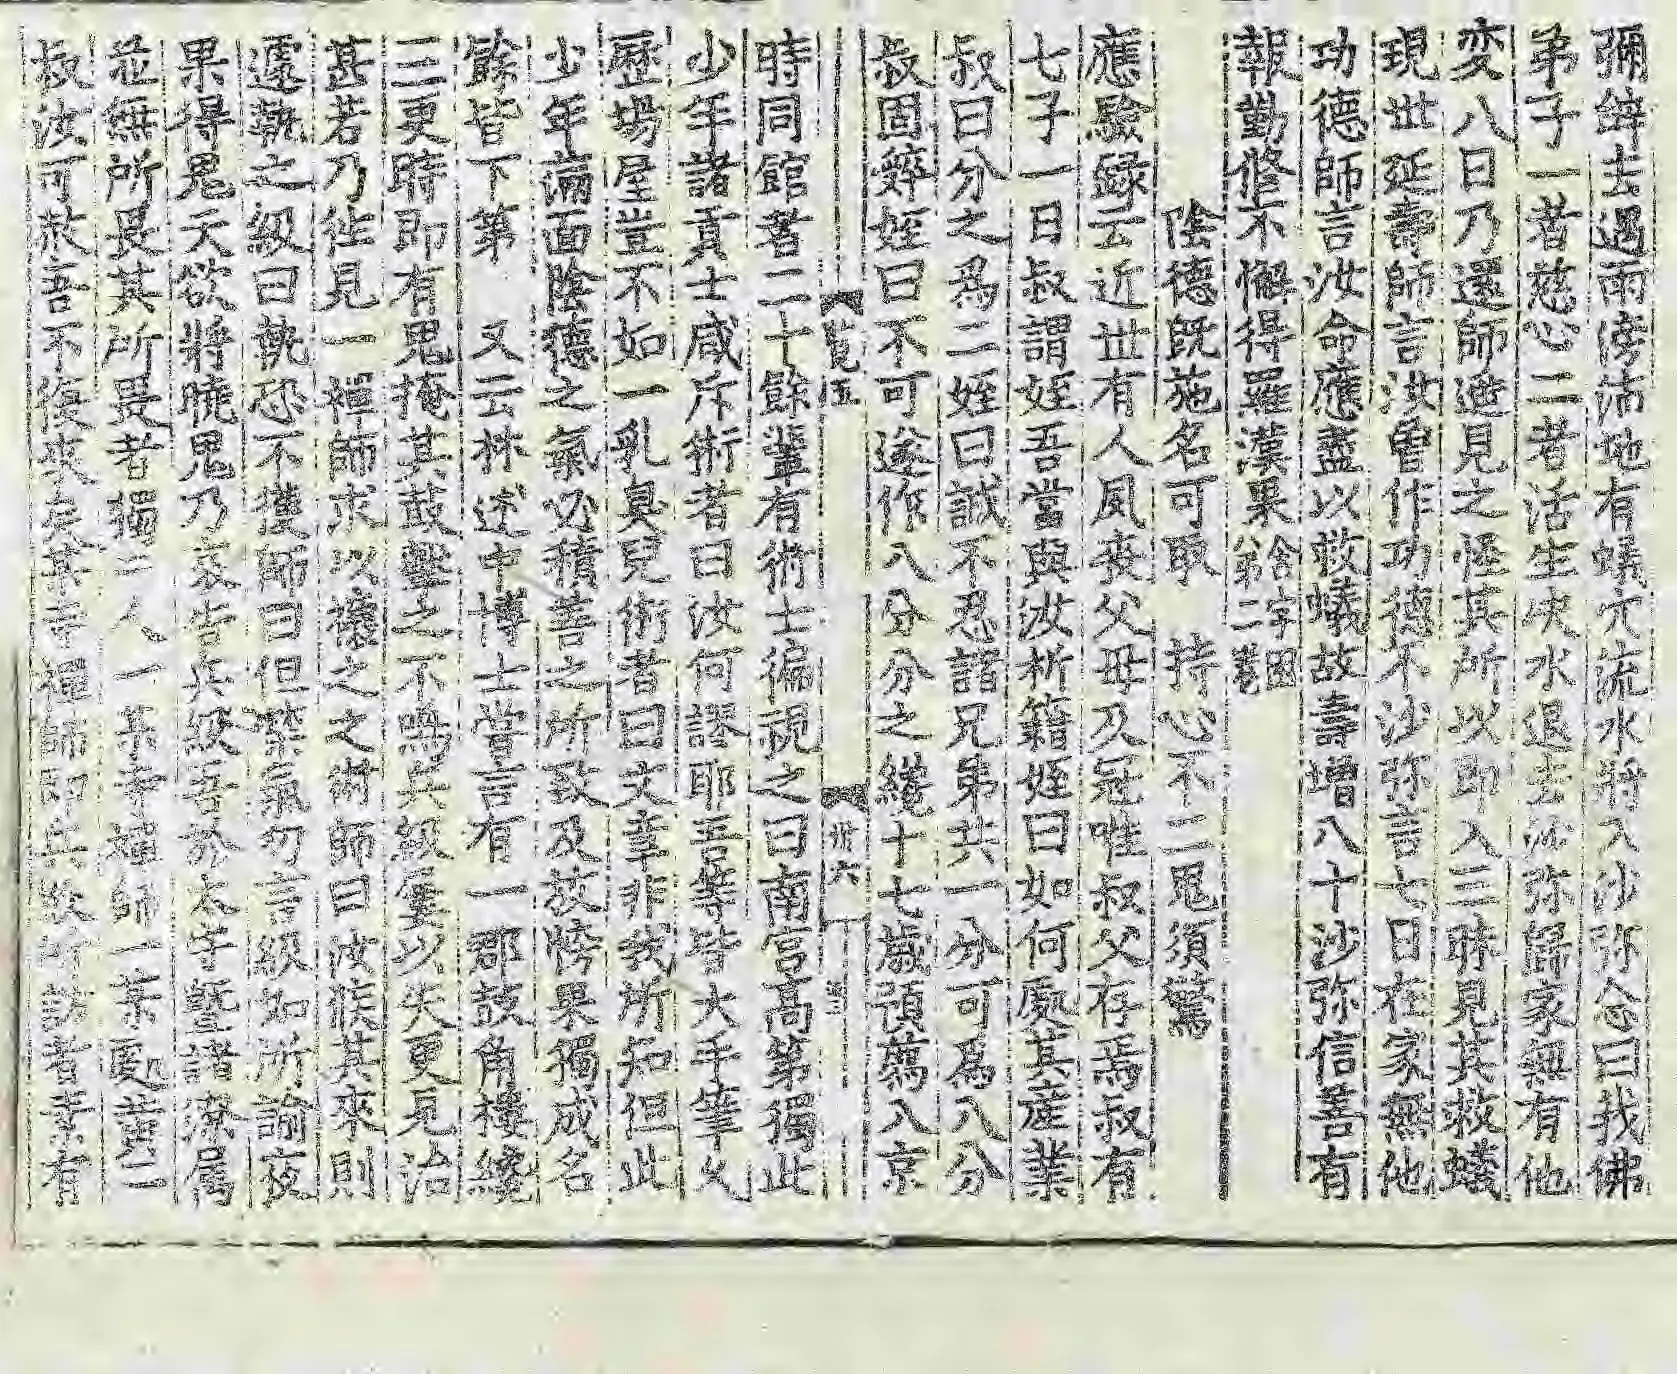 彌辞去過雨滂沛地有蟻穴流水將入沙弥念曰我佛
弟子一者慈心二者活生决水退去沙弥歸家無有他
変八日乃還師遥見之怪其所以即入三昧見其救蟻
現世延壽師言汝曽作功德不沙弥言七日在家無他
功德師言汝命應盡以救蟻故壽增八十沙弥信善有
報勤修不懈得羅漢果舍字函第二卷
隂德既施名可取 持心不二鬼須驚
應驗録云近世有人夙丧父母及冠唯叔父存焉叔有
七子一日叔謂姪吾當與汝析籍姪曰如何處其産業
叔曰分之爲二姪曰誠不忍諸兄弟共一分可爲八分
叔固辤姪曰不可遂作八分分之纔十七歳預薦入京
覧五 卅六
時同館者二十餘輩有術士徧視之曰南宫高第獨此
少年諸貢士咸斥術者曰汝何謬耶吾等皆大手筆久
歴場屋豈不如一乳臭兒術者曰文章非我所知但此
少年滿面隂德之氣必積善之所致及放榜果獨成名
餘皆下第 又云林述中博士嘗言有一郡鼓角樓繞
三更時即有鬼掩其鼓擊之不鳴兵級屢以失更見治
甚若乃徃見一禪師求以禳之之術師曰汝候其來則
遽執之級曰執恐不獲師曰但禁氣勿言級如所諭夜
果得鬼天欲將曉鬼乃哀告兵級吾於本寺曁諸潦属
並無所畏其所畏者獨二人一某寺禪師一某處蕭二
叔汝可放吾不復來矣其寺禪師即兵級所者某有